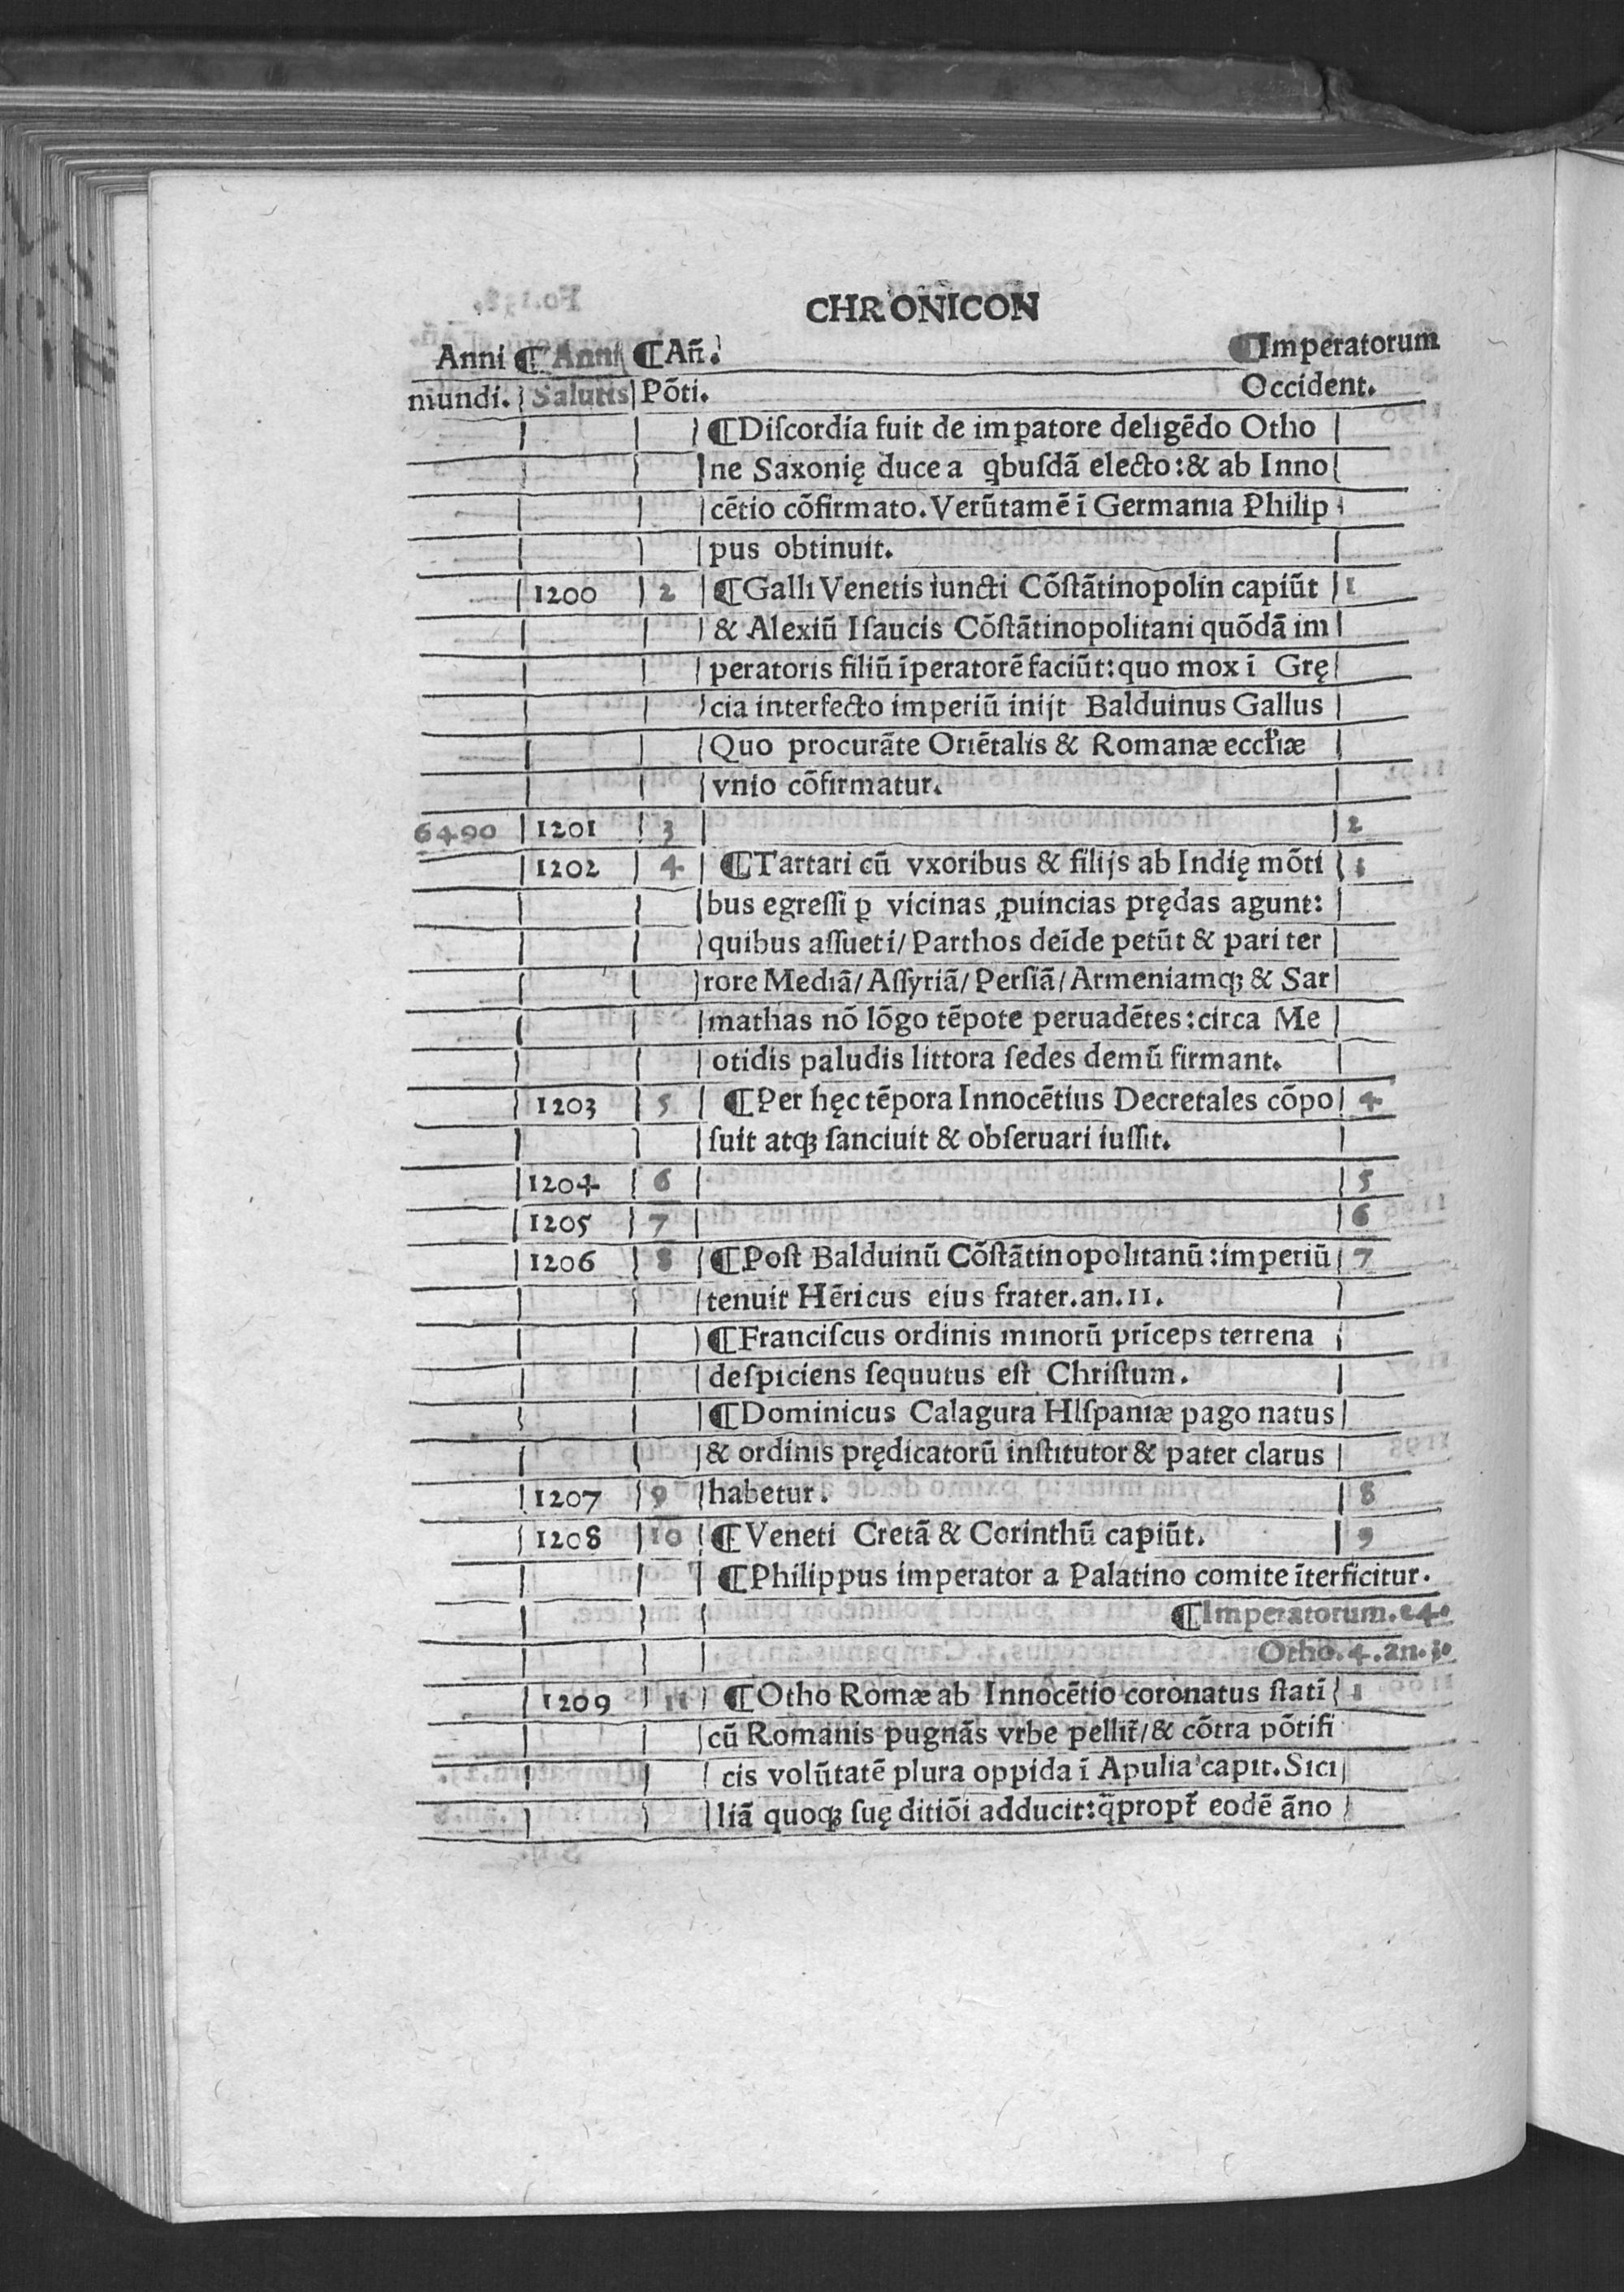 CHRONICON
Anni ¶ Anni ¶ Añ. ¶ Imperatorum
mundi. Salutis Põti. Occident.
¶ Diſcordia fuit de imꝑatore deligẽdo Otho
ne Saxonię duce a qbuſdã electo: & ab Inno
cẽtio cõfirmato. Verũtamẽ ĩ Germania Philip
pus obtinuit.
1200 2 ¶ Galli Venetis iuncti Cõſtãtinopolin capiũt 1
& Alexiũ Iſaucis Cõſtãtinopolitani quõdã im
peratoris filiũ ĩperatorẽ faciũt: quo mox ĩ Grę
cia interfecto imperiũ inijt Balduinus Gallus
Quo procurãte Oriẽtalis & Romanæ eccľiæ
vnio cõfirmatur.
6490 1201 3 2
1202 4 ¶ Tartari cũ vxoribus & filijs ab Indię mõti
bus egreſſi ꝑ vicinas ꝓuincias prędas agunt:
quibus aſſueti/ Parthos deĩde petũt & pari ter
rore Mediã/ Aſſyriã/ Perſiã/ Armeniamqꝫ & Sar
mathas nõ lõgo tẽpote peruadẽtes: circa Me
otidis paludis littora ſedes demũ firmant.
1203 5 ¶ Per hęc tẽpora Innocẽtius Decretales cõpo 4
ſuit atqꝫ ſanciuit & obſeruari iuſſit.
1204 6 5
1205 7 6
1206 8 ¶ Poſt Balduinũ Cõſtãtinopolitanũ: imperiũ 7
tenuit Hẽricus eius frater. an. 11.
¶ Franciſcus ordinis minorũ prĩceps terrena
deſpiciens ſequutus eſt Chriſtum.
¶ Dominicus Calagura HIſpaniæ pago natus
& ordinis prędicatorũ inſtitutor & pater clarus
1207 9 habetur. 8
1208 10 ¶ Veneti Cretã & Corinthũ capiũt. 9
¶ Philippus imperator a Palatino comite ĩterficitur.
¶ Imperatorum.
Otho. 4. an.
1209 11 ¶ Otho Romæ ab Innocẽtio coronatus ſtatĩ 1
cũ Romanis pugnãs vrbe pellit̃/ & cõtra põtifi
cis volũtatẽ plura oppida ĩ Apulia capit. Sici
liã quoqꝫ ſuę ditiõi adducit: q̃propt̃ eodẽ ãno